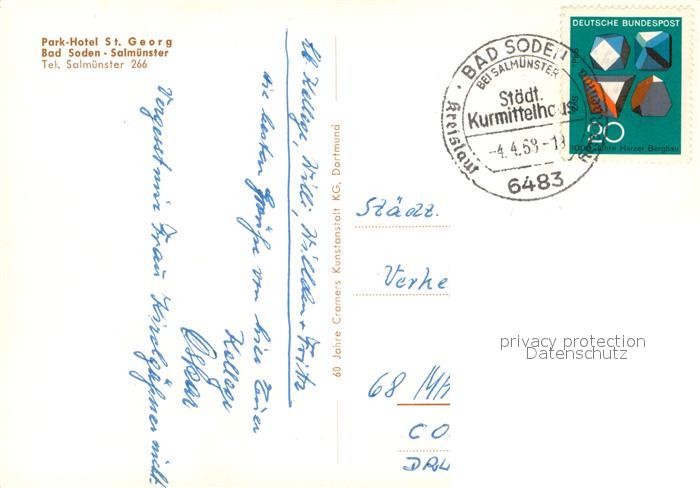 Park-Hotel St. Georg
Bad Soden - Salmünster
Tel. Salmünster 266
Lb. Kollege, Willi, Willden + Fritz
die besten Grüße von hier Euer
Kollege
Oskar
Vergesst mir Frau nicht.
60 Jahre Cramers Kunstanstalt KG, Dortmund
BAD SODEN
BEI SALMÜNSTER
Städt.
Kurmittelhaus
-4.4.68-18
6483
DEUTSCHE BUNDESPOST
20
1000 Jahre Harzer Bergbau
Städt.
Verke
68 MA
CO
privacy protection
Datenschutz